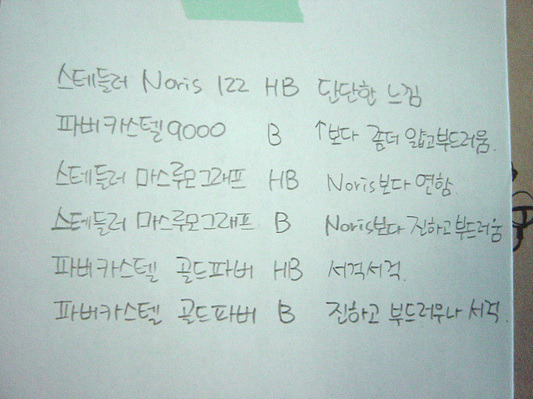 스테들러 Noris 122 HB 단단한 느낌
파버카스텔 9000 B ↑보다 좀더 얇고부드러움.
스테들러 마스루모그래프 HB Noris보다 연함.
스테들러 마스루모그래프 B Noris보다 진하고부드러움
파버카스텔 골드파버 HB 서걱서걱.
파버카스텔 골드파버 B 진하고 부드러우나 서걱.